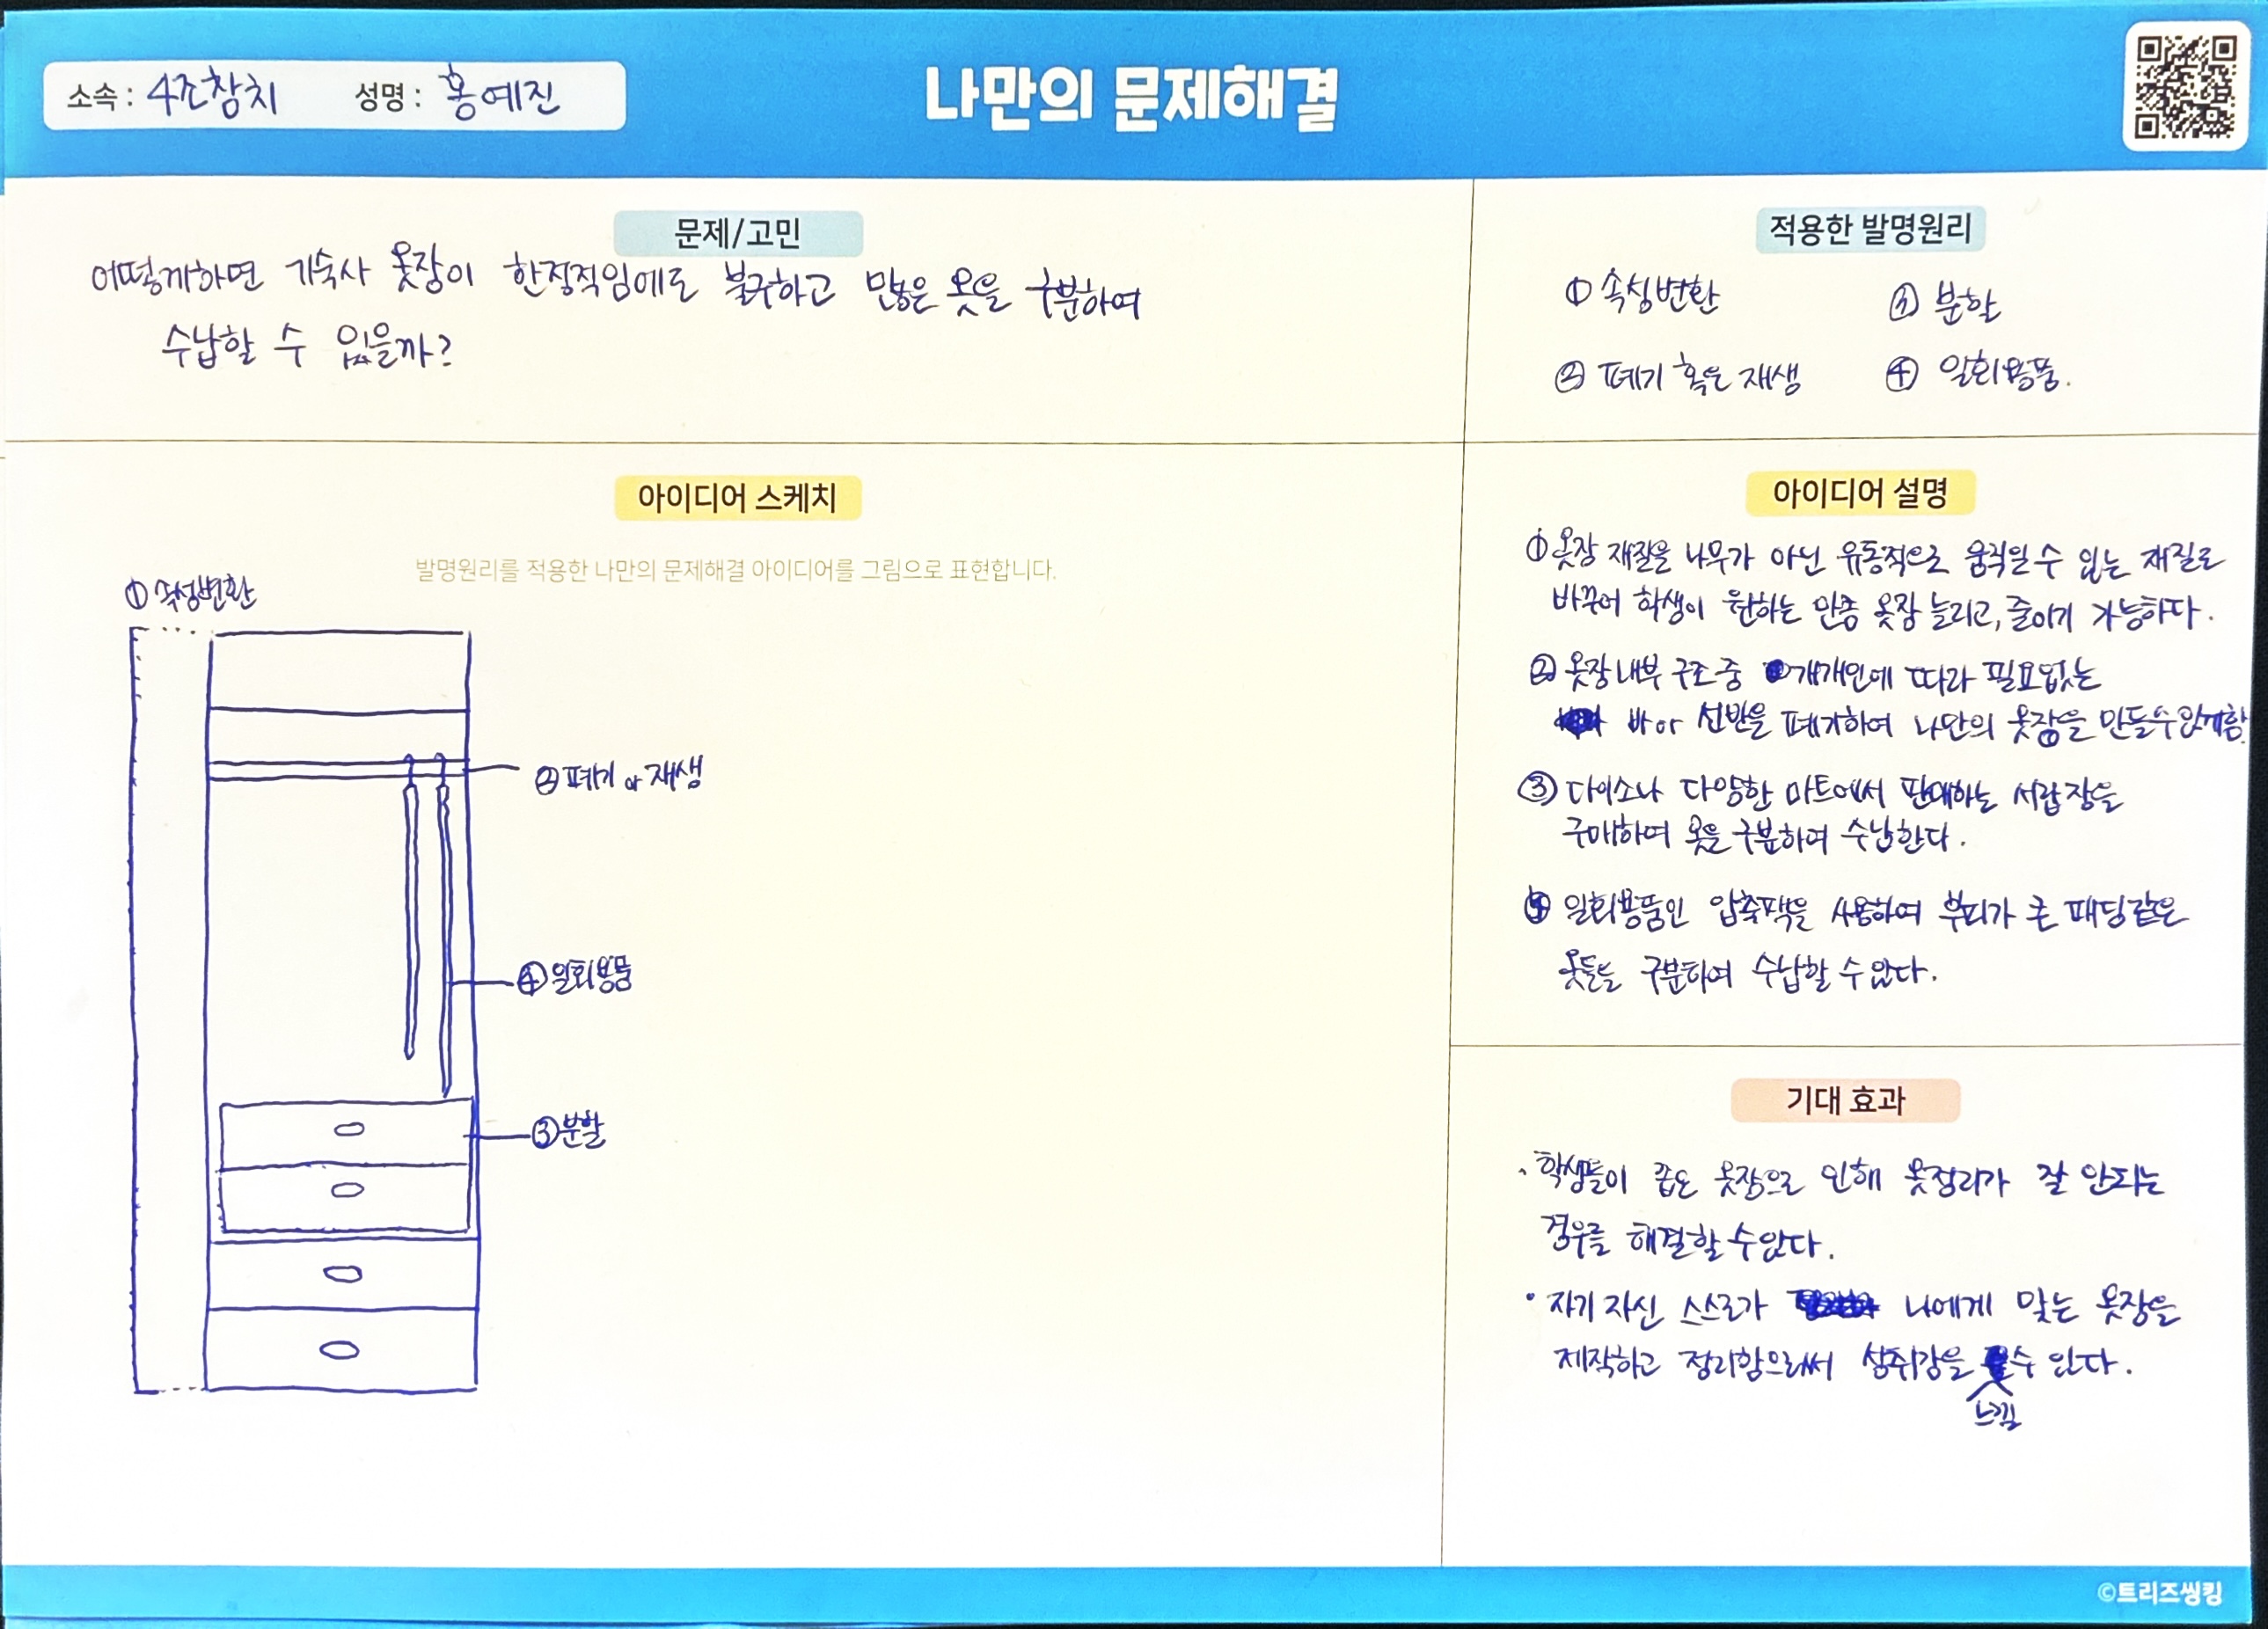 나만의 문제해결
소속 : 4조참치 성명 : 홍예진
문제/고민
어떻게하면 기숙사 옷장이 한정적임에도 불구하고 많은 옷을 구분하여
수납할 수 있을까?
적용한 발명원리
① 속성변환 ③ 분할
② 폐기 혹은 재생 ④ 일회용품.
아이디어 스케치
발명원리를 적용한 나만의 문제해결 아이디어를 그림으로 표현합니다.
① 속성변환
② 폐기 or 재생
④ 일회용품
③ 분할
아이디어 설명
① 옷장 재질을 나무가 아닌 유동적으로 움직일 수 있는 재질로
바꾸어 학생이 원하는 만큼 옷장 늘리고, 줄이기 가능하다.
② 옷장 내부 구조 중 개개인에 따라 필요없는
바 or 선반을 폐기하여 나만의 옷장을 만들 수 있게함
③ 다이소나 다양한 마트에서 판매하는 서랍장을
구매하여 옷을 구분하여 수납한다.
④ 일회용품인 압축팩을 사용하여 부피가 큰 패딩같은
옷들을 구분하여 수납할 수 있다.
기대 효과
· 학생들이 좁은 옷장으로 인해 옷정리가 잘 안되는
경우를 해결할 수 있다.
· 자기 자신 스스로가 나에게 맞는 옷장을
제작하고 정리함으로써 성취감을 느낄 수 있다.
©트리즈씽킹